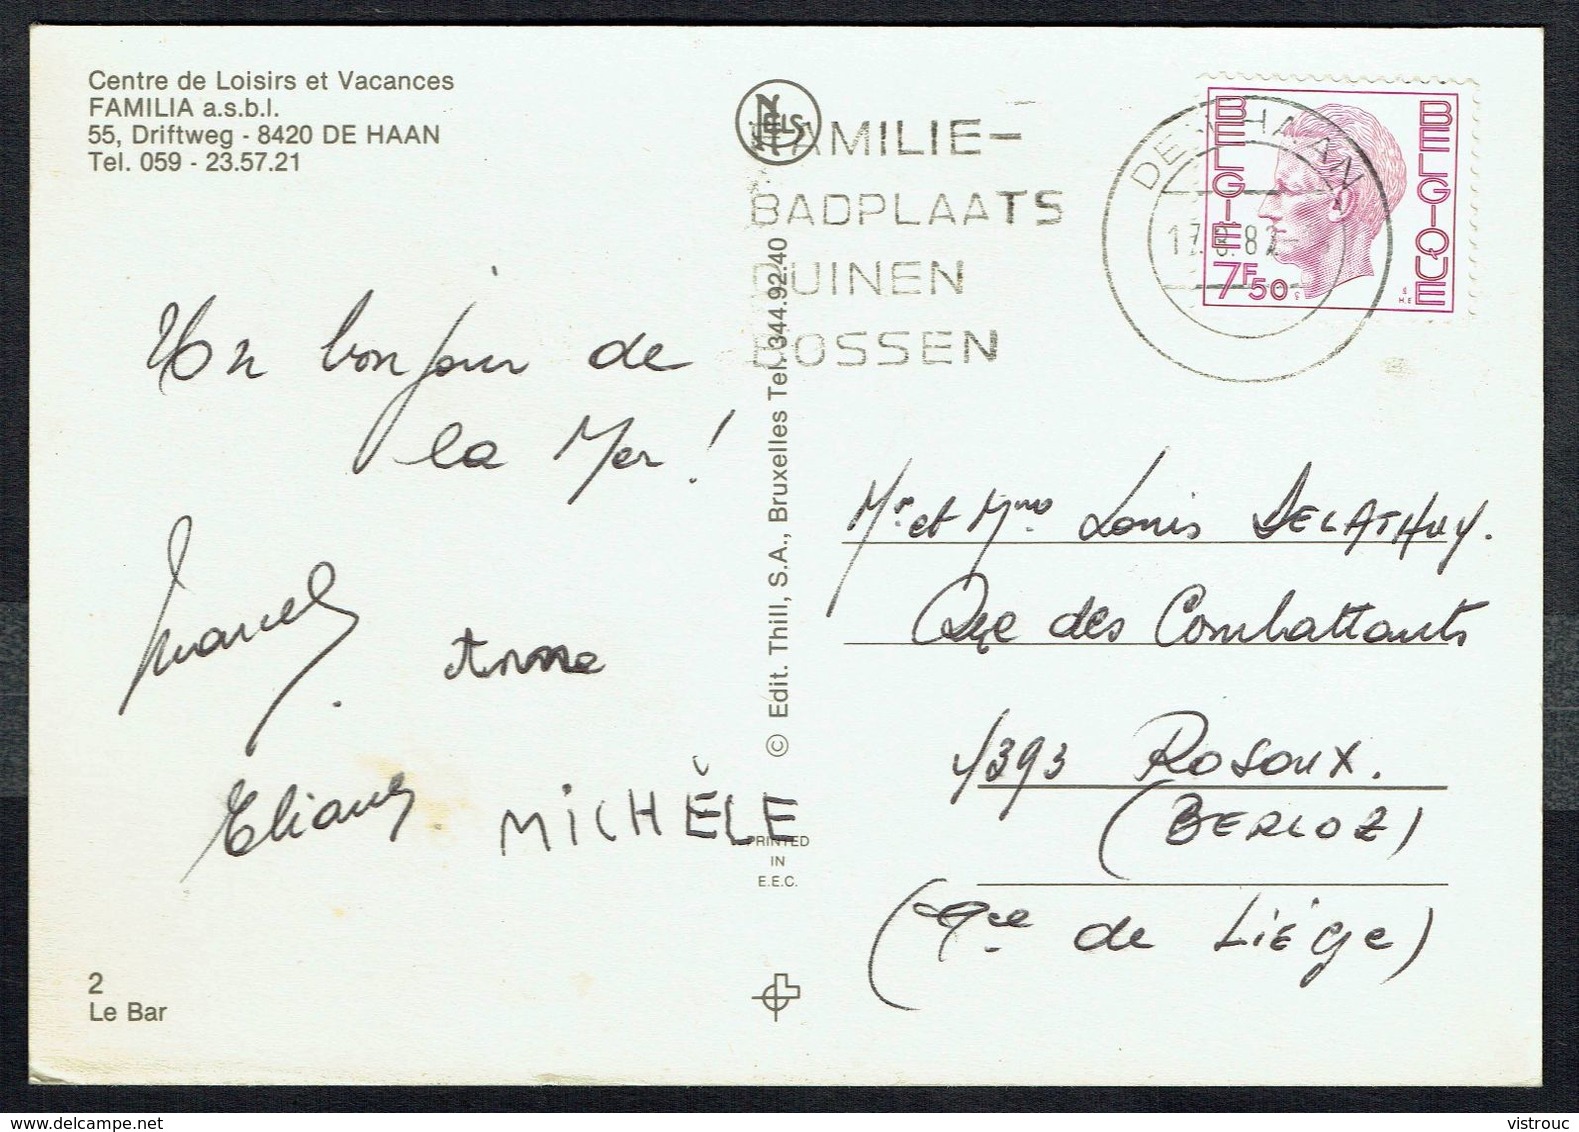 Centre de Loisirs et Vacances
FAMILIA a.s.b.l.
55, Driftweg - 8420 DE HAAN
Tel. 059 - 23.57.21
NELS
FAMILIE-
BADPLAATS
DUINEN
BOSSEN
DE HAAN
BELGIE
BELGIQUE
7F50
Un bonjour de
la Mer !
Marcel
Anne
Eliane
MICHÈLE
© Edit. Thill, S.A., Bruxelles Tel. 344.92.40
PRINTED
IN
E.E.C.
Mr et Mme Louis DELATHUY.
Rue des Combattants
4393 ROSOUX.
(BERLOZ)
(Pce de LIÉGE)
2
Le Bar
https://www.delcampe.net
vistrouc